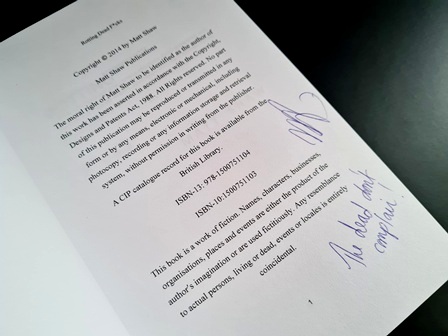 Rotting Dead Fucks
Copyright © 2014 by Matt Shaw
Matt Shaw Publications
The moral right of Matt Shaw to be identified as the author of
this work has been asserted in accordance with the Copyright,
Designs and Patents Act, 1988. All Rights reserved. No part
of this publication may be reproduced or transmitted in any
form or by any means, electronic or mechanical, including
photocopy, recording or any information storage and retrieval
system, without permission in writing from the publisher.
A CIP catalogue record for this book is available from the
British Library.
ISBN-13: 978-1500751104
ISBN-10:1500751103
This book is a work of fiction. Names, characters, businesses,
organisations, places and events are either the product of the
author's imagination or are used fictitiously. Any resemblance
to actual persons, living or dead, events or locales is entirely
coincidental.
The dead don't
complain!